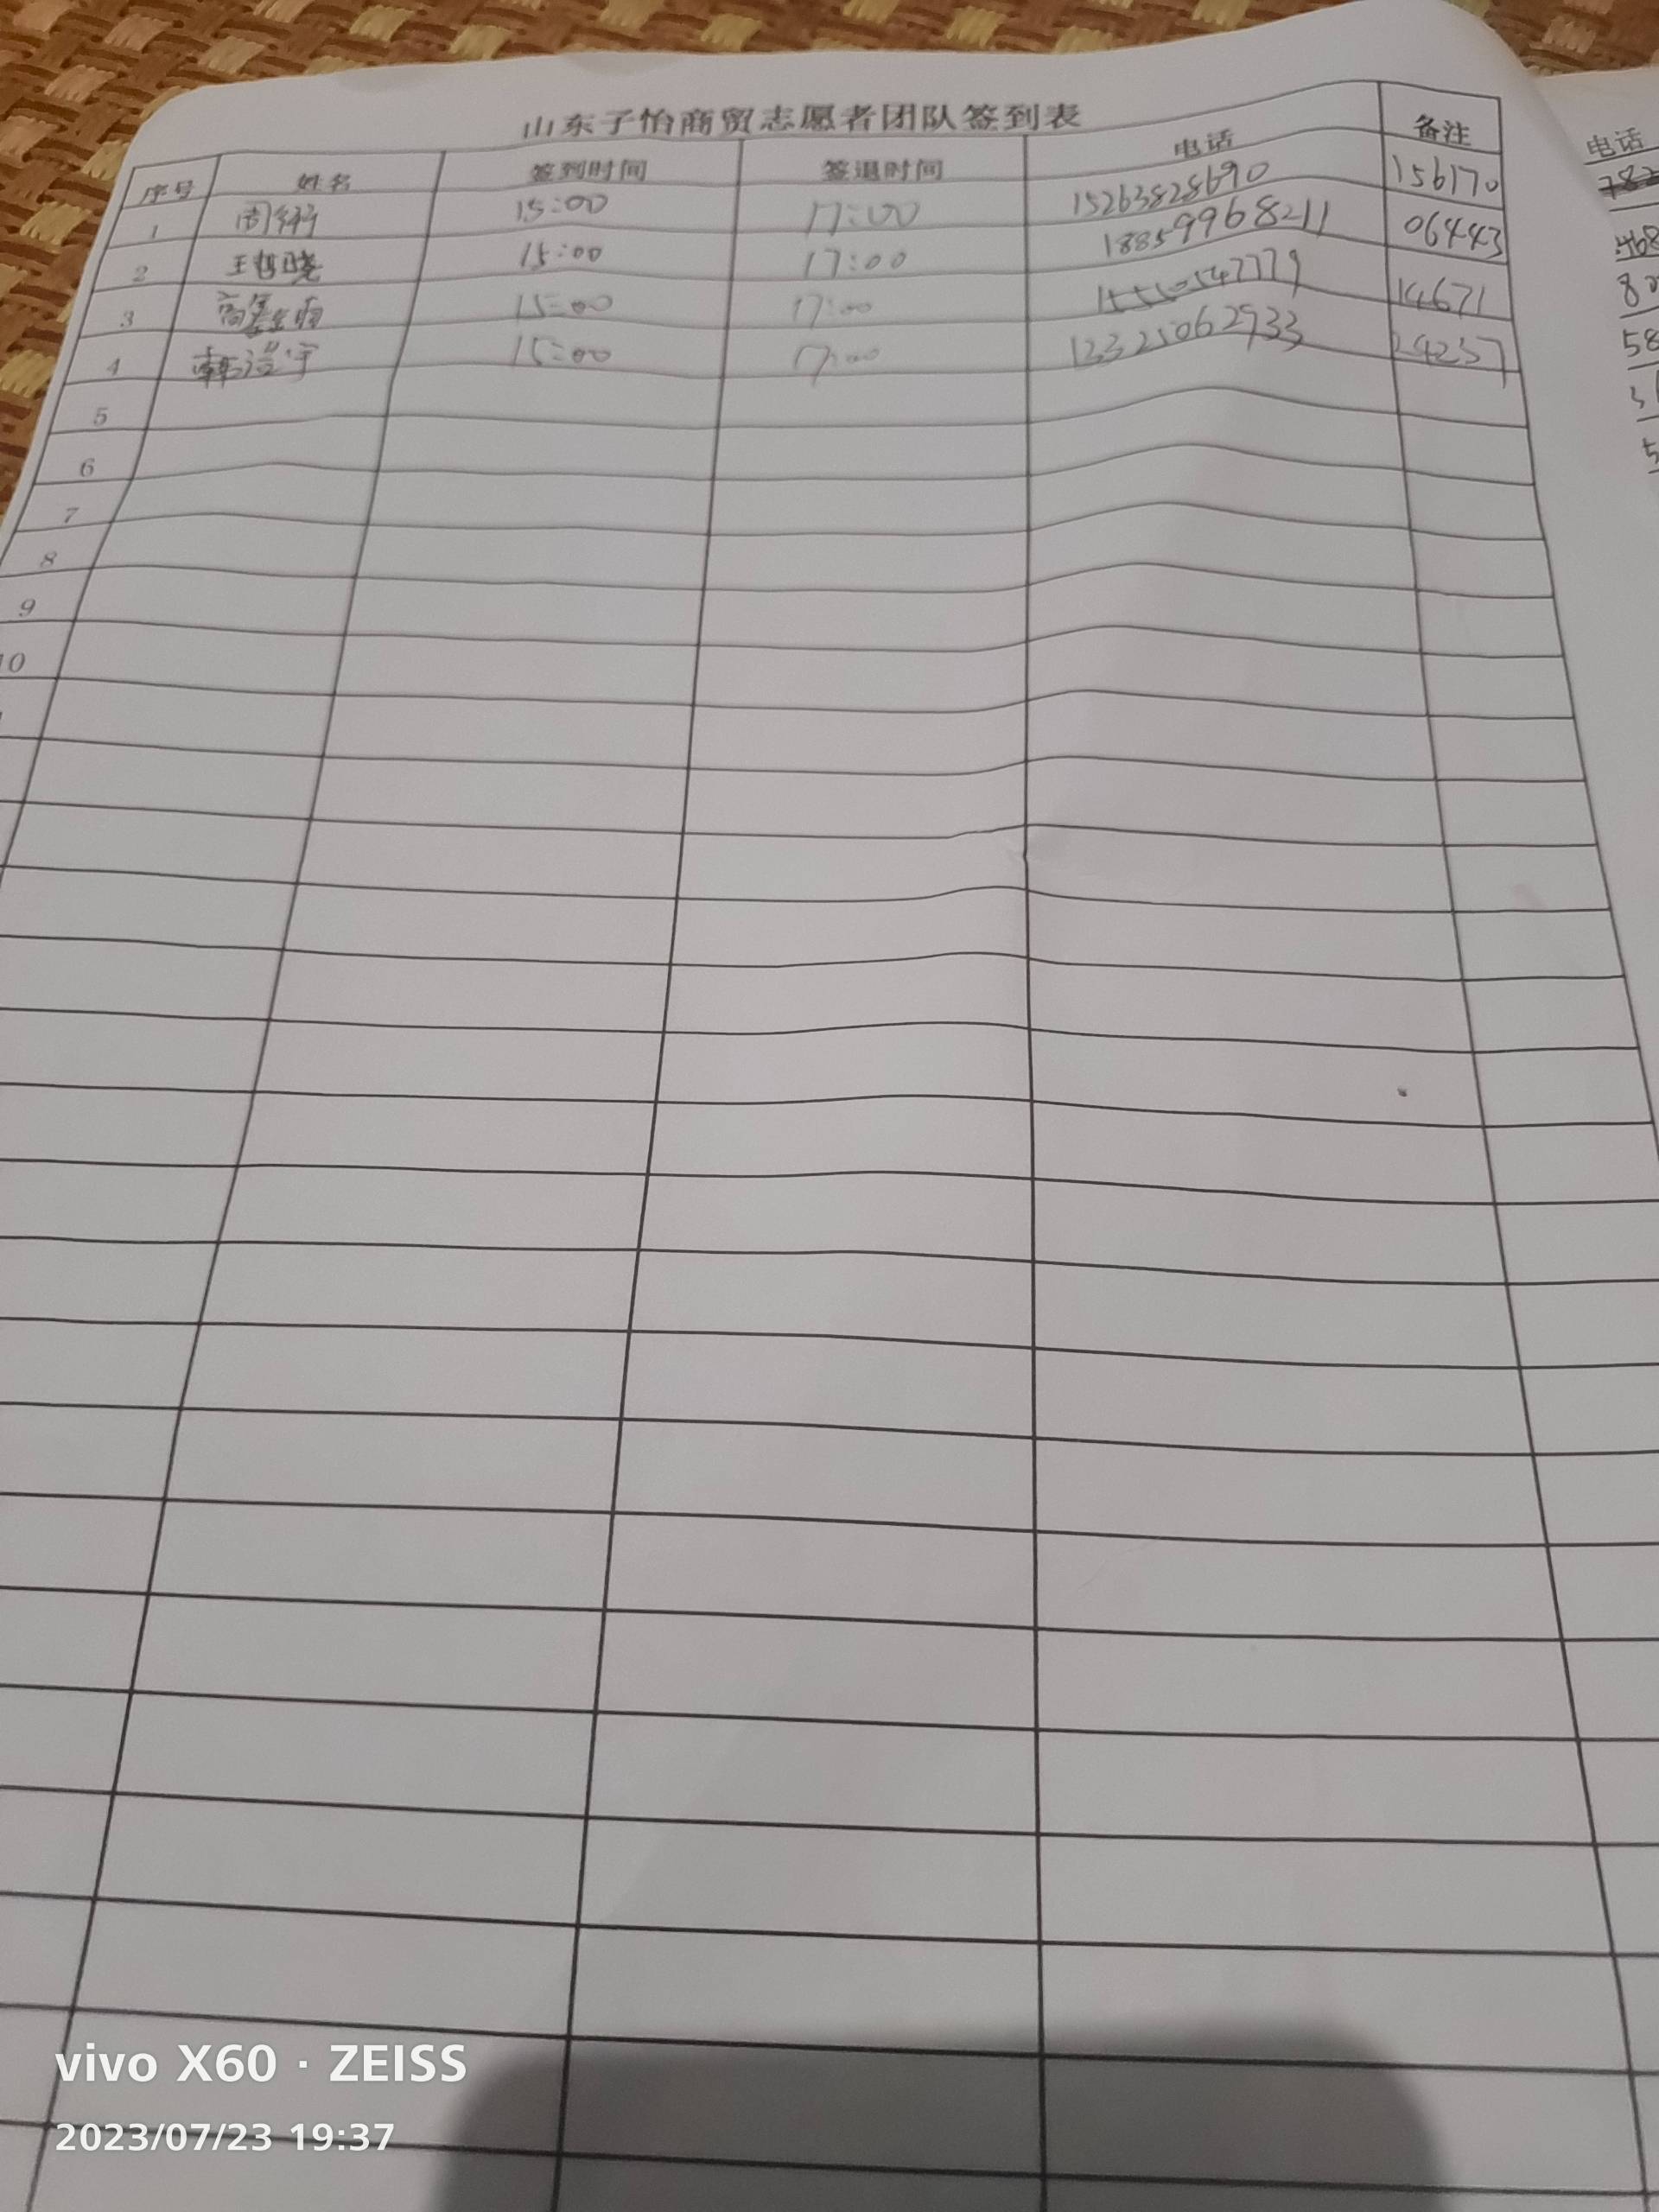 山东子怡商贸志愿者团队签到表
序号 姓名 签到时间 签退时间 电话 备注
1 周 15:00 17:00 15263828690 156170
2 王哲晓 15:00 17:00 18859968211 06443
3 高 雨 15:00 17:00 15550547779 14671
4 韩浩宇 15:00 17:00 24257
5
6
7
8
9
10
电话
58
vivo X60 · ZEISS
2023/07/23 19:37